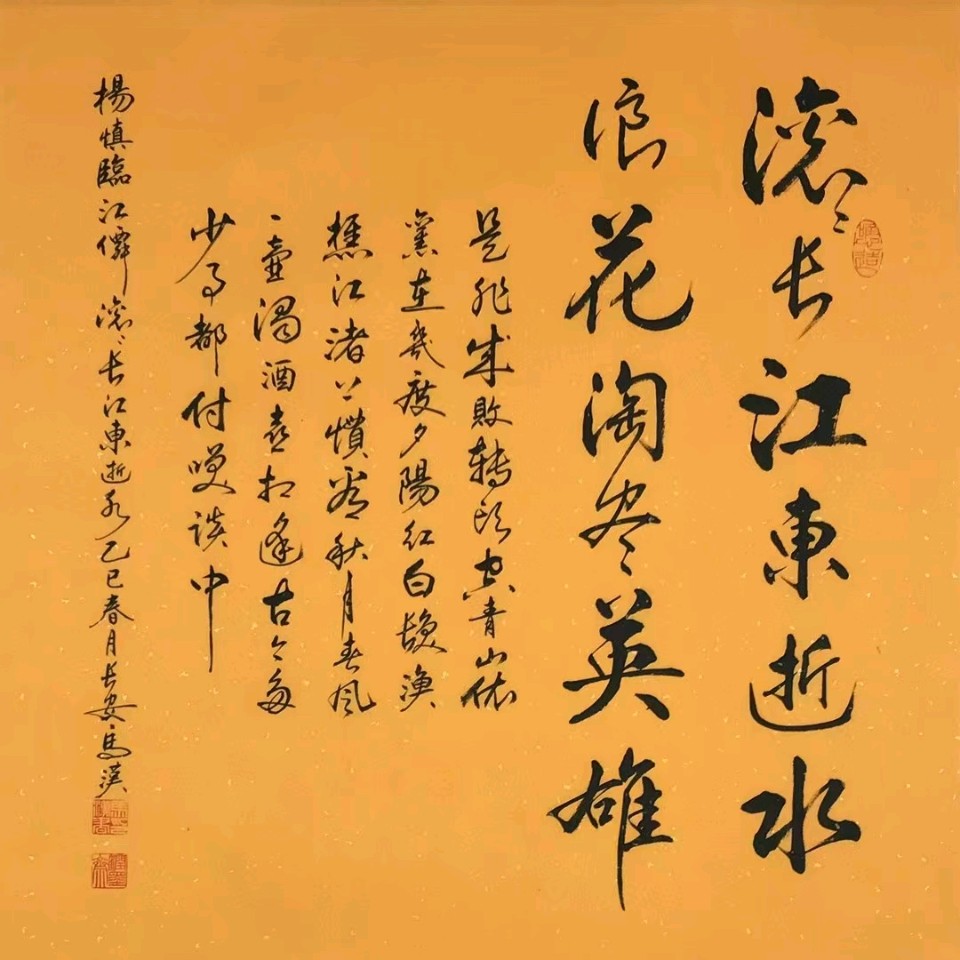 滚々长江東逝水
浪花淘尽英雄
是非成敗轉头空青山依
舊在幾度夕陽红白髮渔
樵江渚上慣看秋月春風
一壶濁酒喜相逢古今多
少事都付笑谈中
楊慎臨江僊滚々长江東逝水乙巳春月长安馬漢